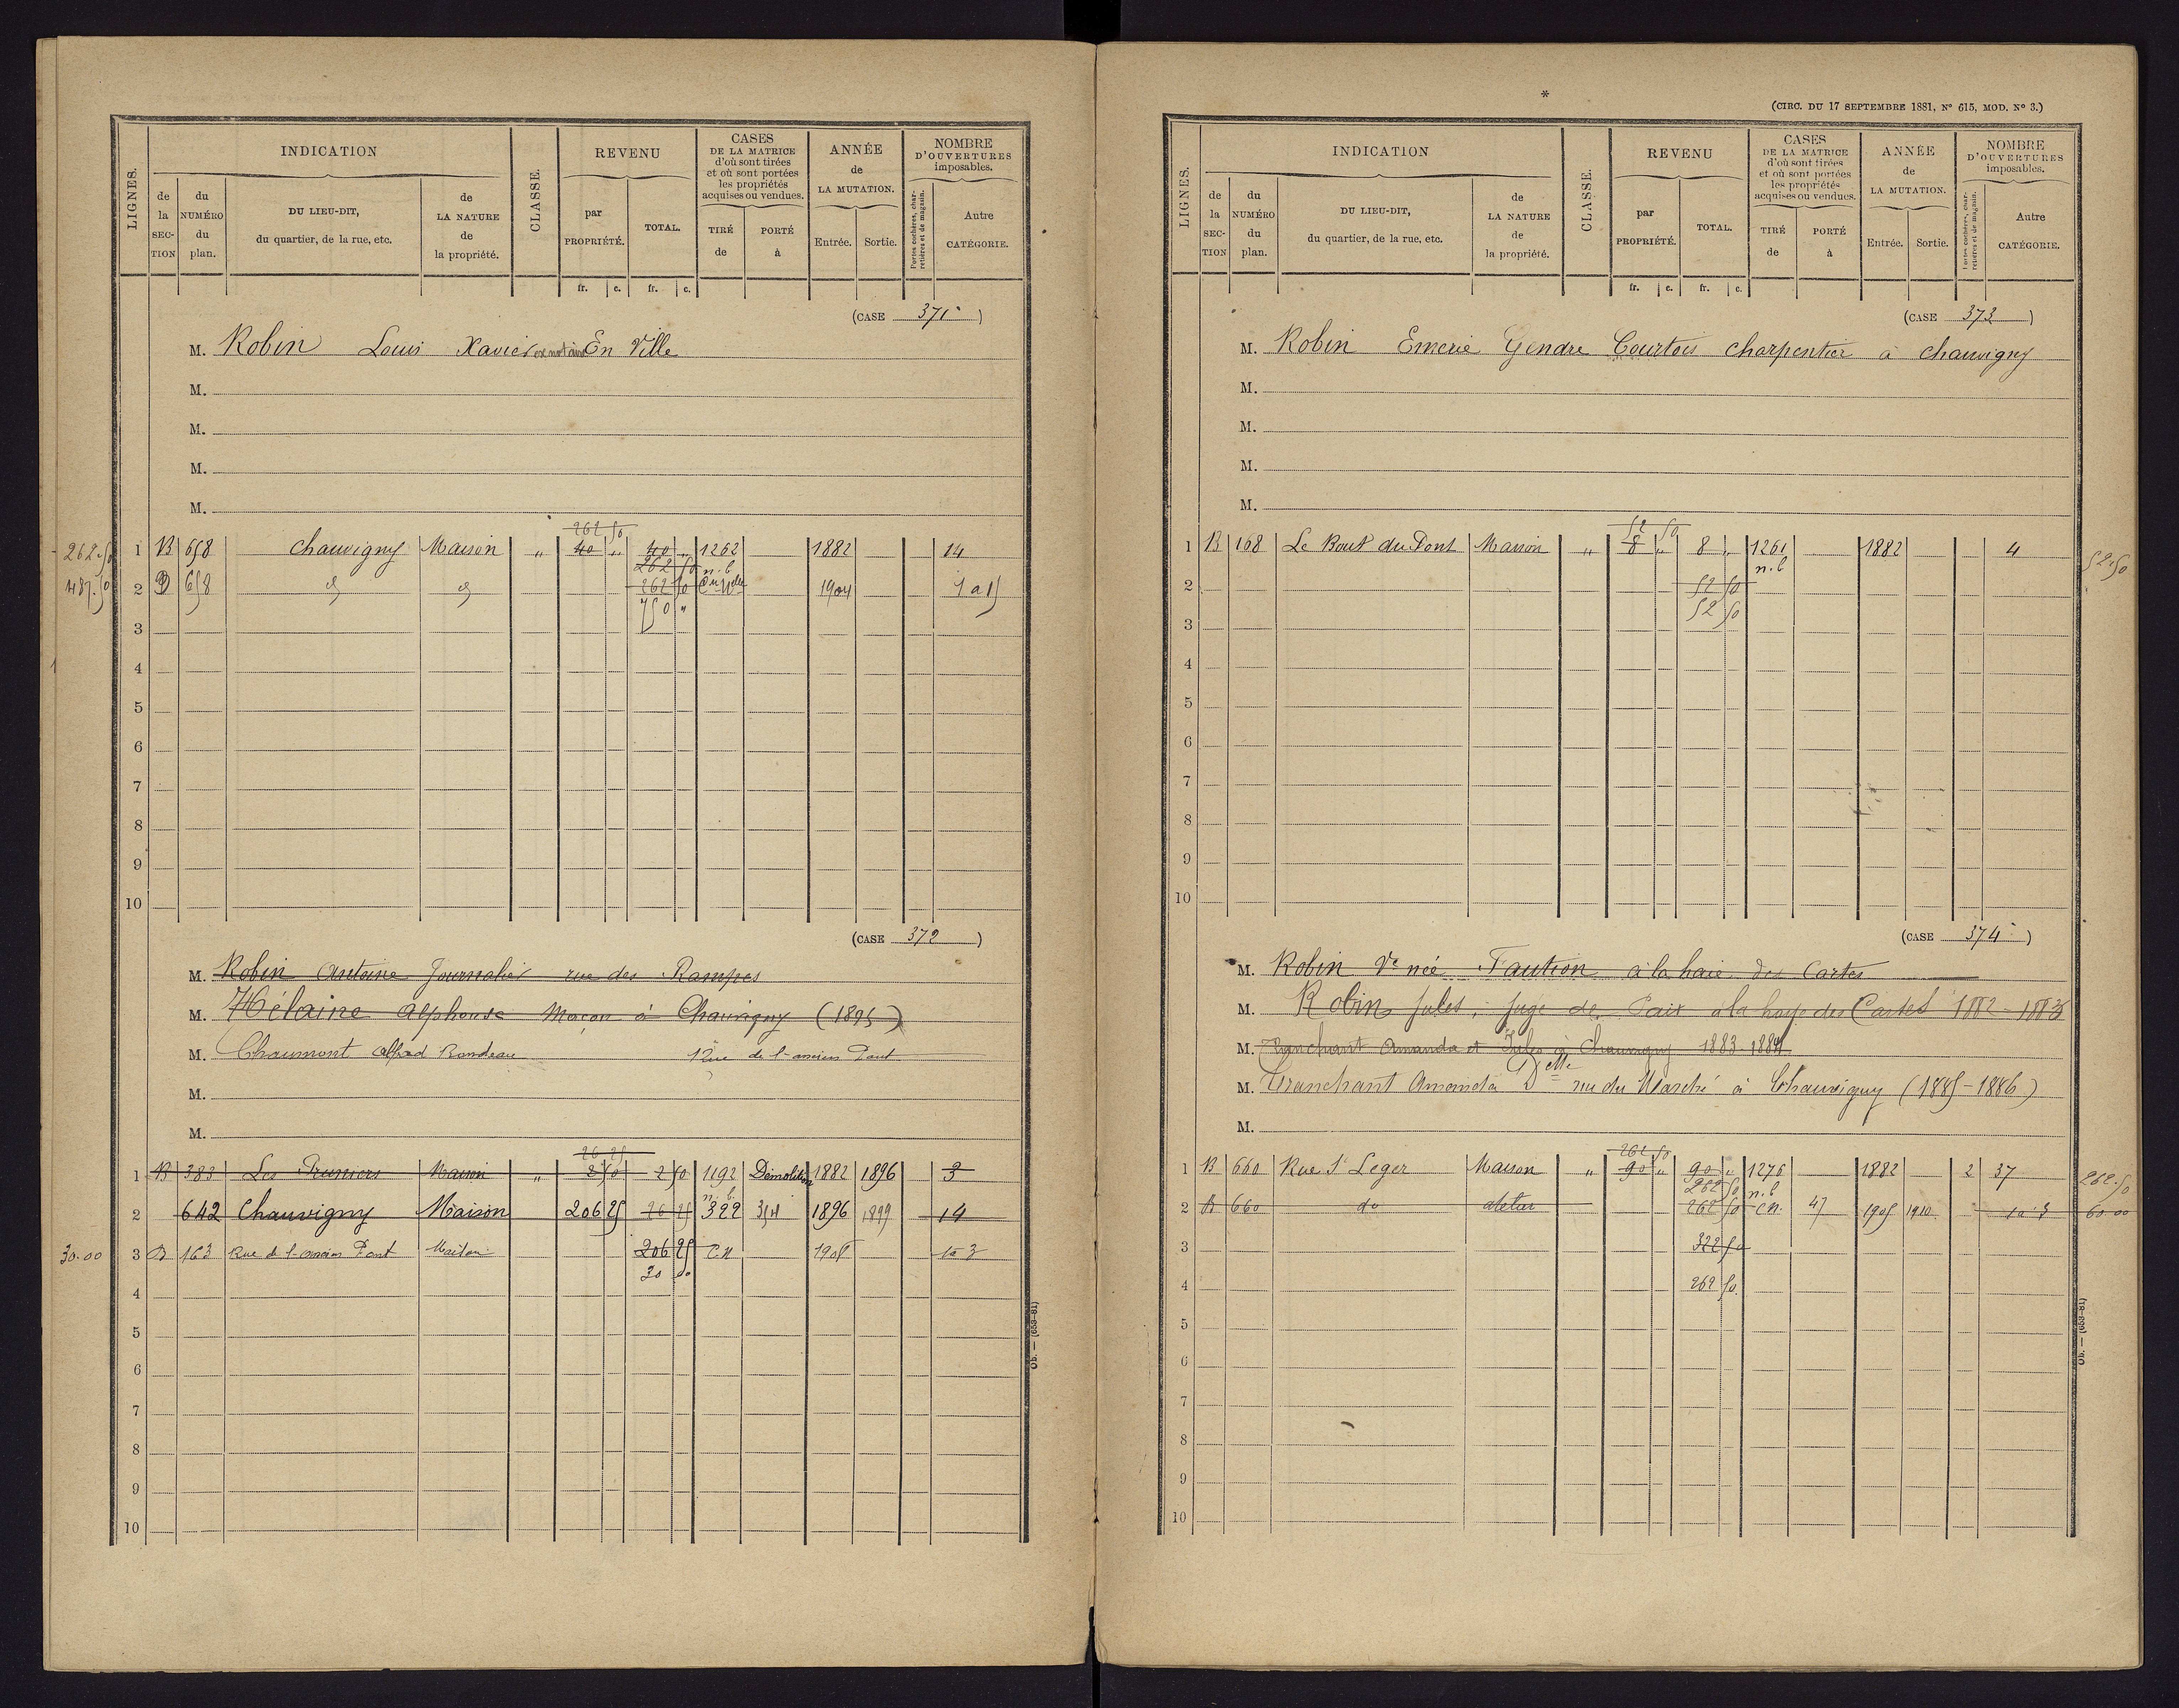 LIGNES.
INDICATION
de la SEC-TION
du NUMÉRO du plan.
DU LIEU-DIT, du quartier, de la rue, etc.
de LA NATURE de la propriété.
CLASSE.
REVENU
par PROPRIÉTÉ.
TOTAL.
fr. c. fr. c.
CASES DE LA MATRICE d'où sont tirées et où sont portées les propriétés acquises ou vendues.
TIRÉ de
PORTÉ à
ANNÉE de LA MUTATION.
Entrée. Sortie.
NOMBRE D'OUVERTURES imposables.
Portes cochères, charretières et de magasin.
Autre CATÉGORIE.
(CASE 371)
M. Robin Louis Xavier ex notaire En Ville
M.
M.
M.
M.
262 50
262.50 1 B 658 Chauvigny Maison " 40 " 40 " 1262 1882 14
262 50 n.b
487.50 2 D 658 d d 262 50 1904 1 a 15
750 "
3
4
5
6
7
8
9
10
(CASE 372)
M. Robin Antoine Journalier rue des Rampes
M. Hélaine Alphonse Maçon à Chauvigny (1895)
M. Chaumont Alfred Rondeau Rue de l'ancien Pont
M.
M.
26 25
1 B 383 Les Pruniers Maison " 2 50 2 50 1192 Démolition 1882 1896 3
n.b.
2 642 Chauvigny Maison 206 25 26 25 322 354 1896 1899 14
30.00 3 B 163 Rue de l'ancien Pont Maison 206 25 C.N 1908 1 a 3
30 00
4
5
6
7
8
9
10
Ob. — (653-81)
*
(CIRC. DU 17 SEPTEMBRE 1881, N° 615, MOD. N° 3.)
LIGNES.
INDICATION
de la SEC-TION
du NUMÉRO du plan.
DU LIEU-DIT, du quartier, de la rue, etc.
de LA NATURE de la propriété.
CLASSE.
REVENU
par PROPRIÉTÉ.
TOTAL.
fr. c. fr. c.
CASES DE LA MATRICE d'où sont tirées et où sont portées les propriétés acquises ou vendues.
TIRÉ de
PORTÉ à
ANNÉE de LA MUTATION.
Entrée. Sortie.
NOMBRE D'OUVERTURES imposables.
Portes cochères, charretières et de magasin.
Autre CATÉGORIE.
(CASE 373)
M. Robin Emerie Gendre Courtois charpentier à chauvigny
M.
M.
M.
M.
52 50
1 B 168 Le Bout du Pont Maison " 8 " 8 " 1261 1882 4 52.50
n.b
2 52 50
52 50
3
4
5
6
7
8
9
10
(CASE 374)
M. Robin Ve née Faution à la haie des Cartes
M. Robin Jules, juge de Paix à la haye des Cartes 1882-1883
M. Tranchant Amanda et Jules à Chauvigny 1883-1884
M. Tranchant Amanda Delle rue du Marché à Chauvigny (1885-1886)
M.
262 50
1 B 660 Rue St Leger Maison " 90 " 90 " 1276 1882 2 37 262.50
262 50 n.b
2 B 660 do atelier 262 50 C.N. 47 1905 1910 1 a 3 60.00
3 322 50
4 262 50
5
6
7
8
9
10
Ob. — (653-81)